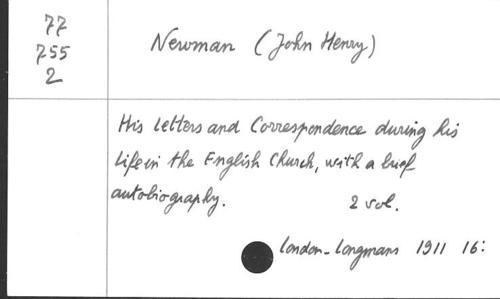 77
755
2
Newman (John Henry)
His letters and Correspondence during his
life in the English Church, with a brief
autobiography.
2 vol.
London - Longmans 1911 16: